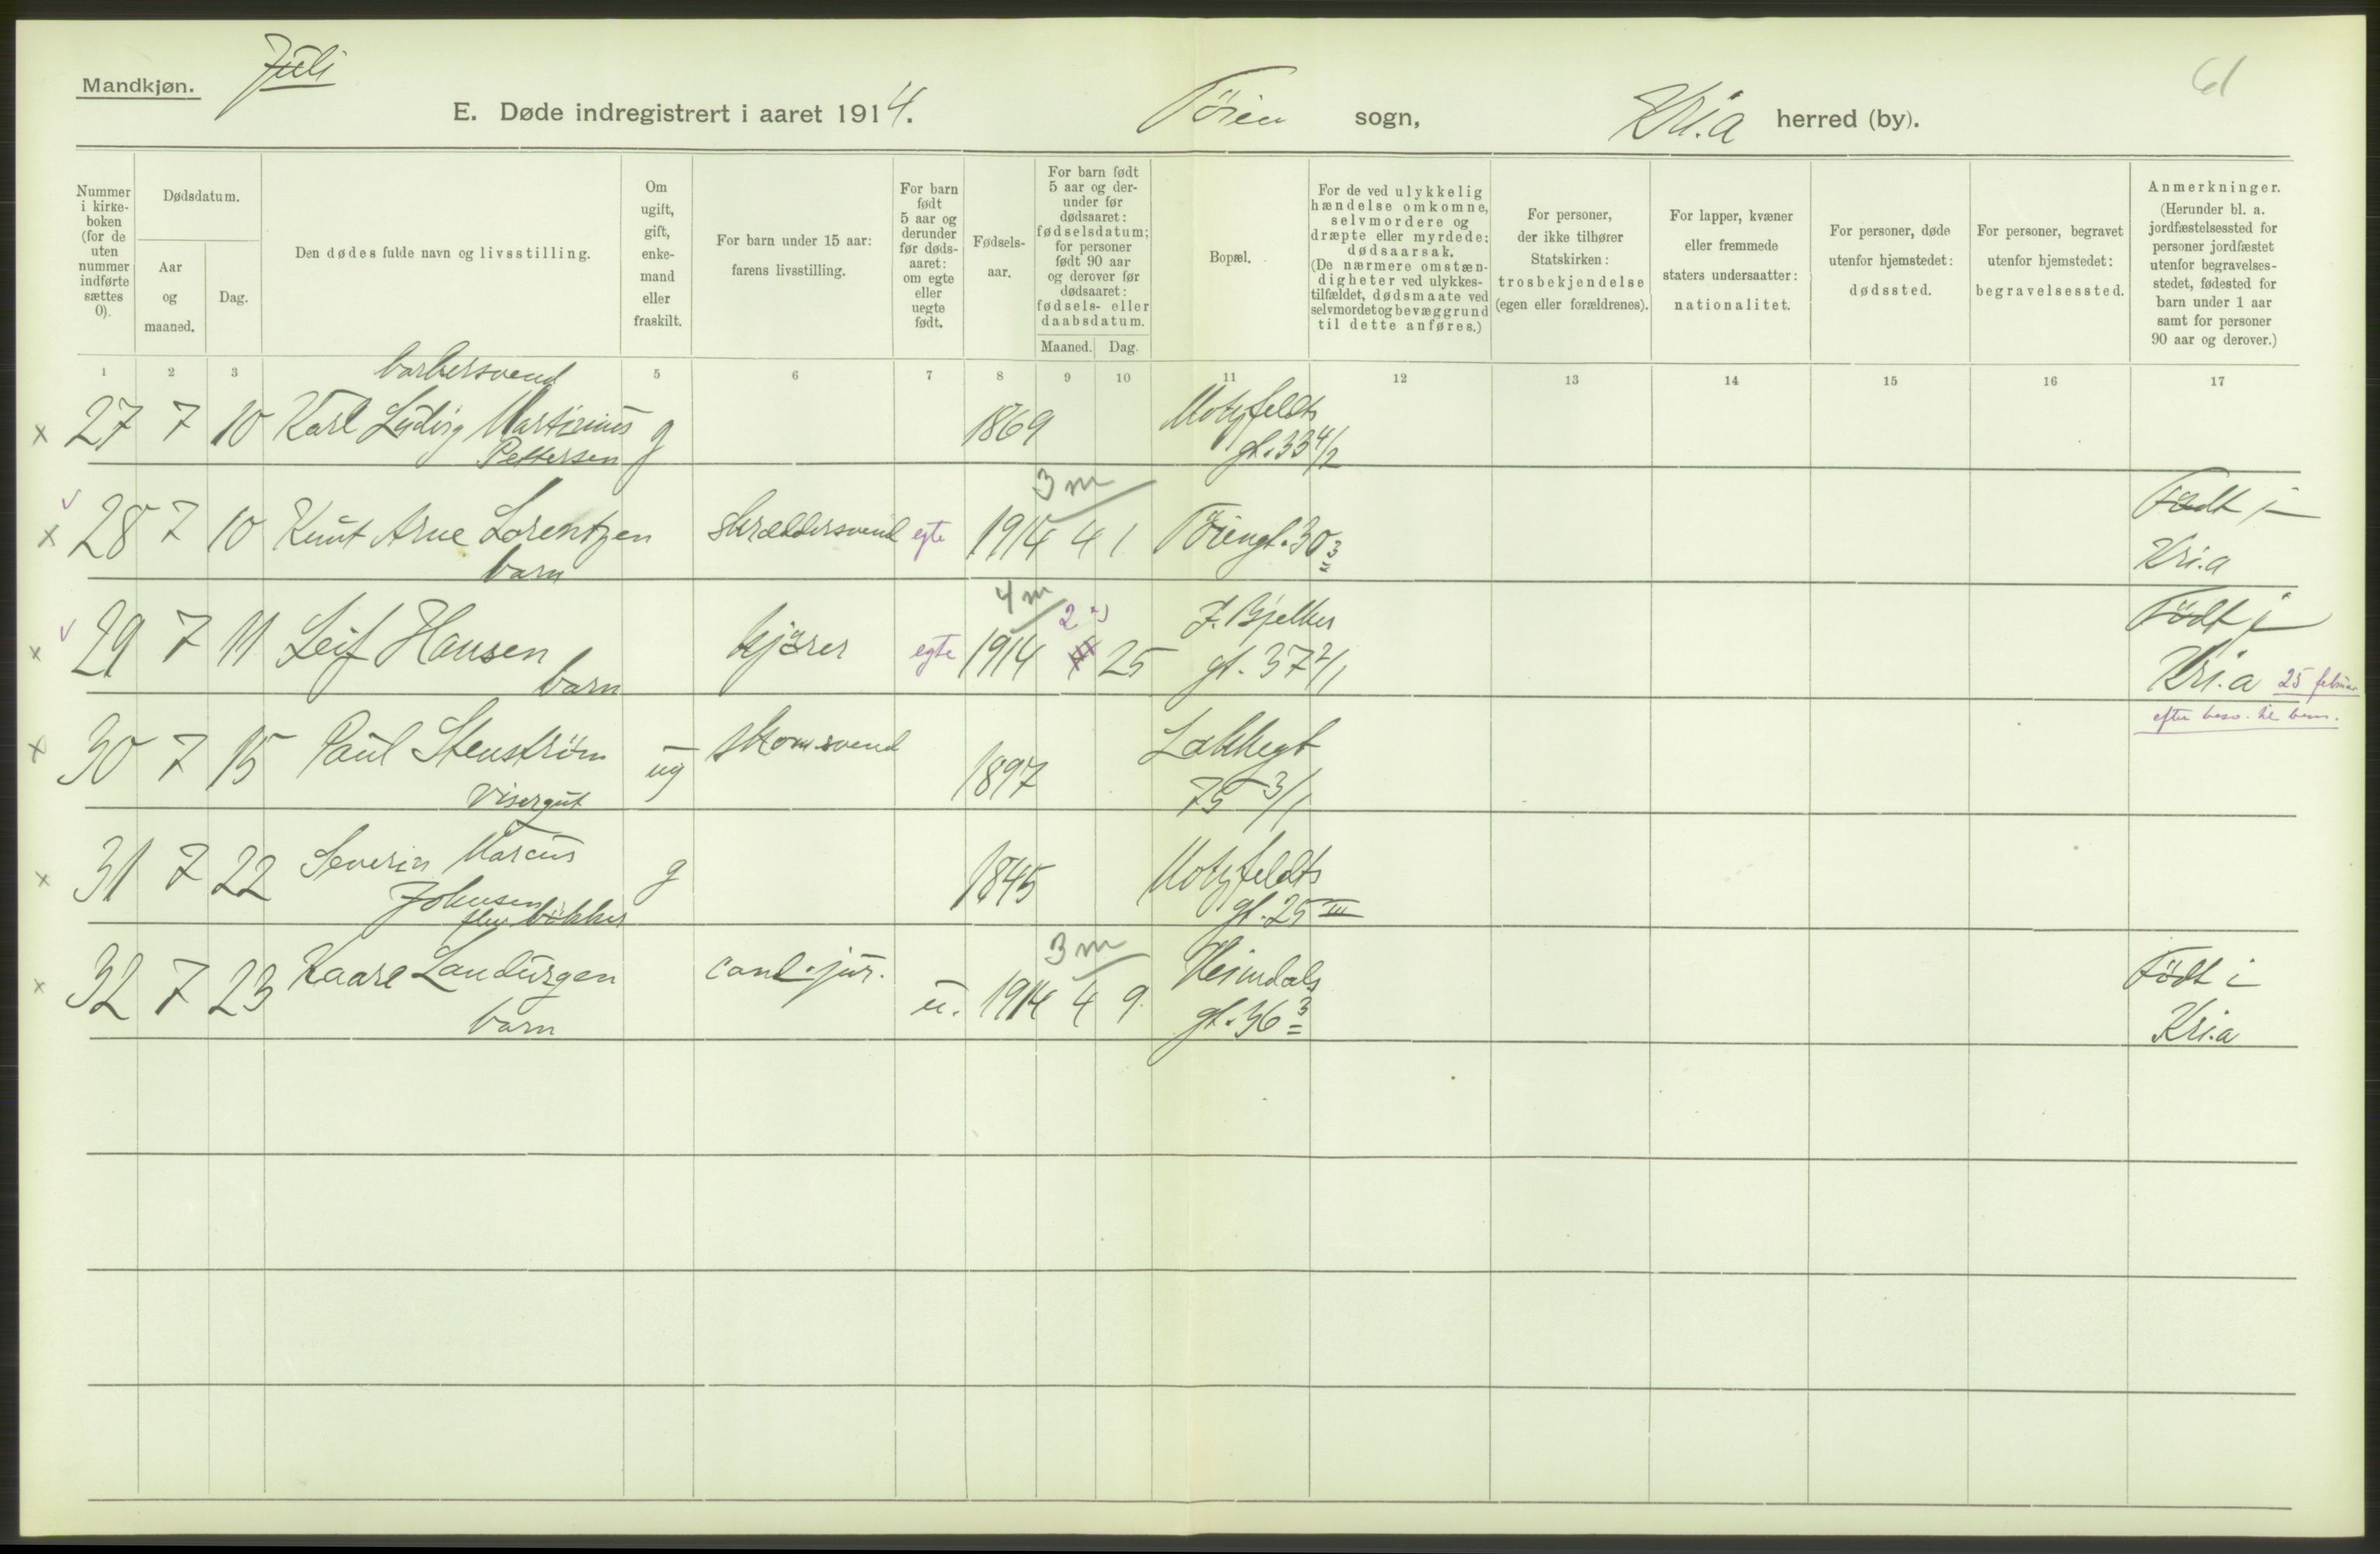 Mandkjøn.
Juli
61
E. Døde indregistrert i aaret 1914. Töien sogn, Kri.a herred (by).
Nummer i kirkeboken (for de uten nummer indførte sættes 0).
Dødsdatum.
Aar og maaned.
Dag.
Den dødes fulde navn og livsstilling.
Om ugift, gift, enkemand eller fraskilt.
For barn under 15 aar: farens livsstilling.
For barn født 5 aar og derunder før dødsaaret: om egte eller uegte født.
Fødselsaar.
For barn født 5 aar og derunder før dødsaaret: fødselsdatum; for personer født 90 aar og derover før dødsaaret: fødsels- eller daabsdatum.
Maaned. Dag.
Bopæl.
For de ved ulykkelig hændelse omkomne, selvmordere og dræpte eller myrdede: dødsaarsak. (De nærmere omstændigheter ved ulykkestilfældet, dødsmaate ved selvmordet og bevæggrund til dette anføres.)
For personer, der ikke tilhører Statskirken: trosbekjendelse (egen eller forældrenes).
For lapper, kvæner eller fremmede staters undersaatter: nationalitet.
For personer, døde utenfor hjemstedet: dødssted.
For personer, begravet utenfor hjemstedet: begravelsessted.
Anmerkninger. (Herunder bl. a. jordfæstelsessted for personer jordfæstet utenfor begravelsesstedet, fødested for barn under 1 aar samt for personer 90 aar og derover.)
1 2 3 5 6 7 8 9 10 11 12 13 14 15 16 17
barbersvend
x 27 7 10 Karl Ludvig Martinius g 1869 Motzfeldts
Pettersen gt. 33 4/2
3 m
x 28 7 10 Knut Arne Lorentzen skræddersvend egte 1914 4 1 Töiengt. 30 3 Födt i
barn Kri.a
4 m 2
x 29 7 11 Leif Hansen kjörer egte 1914 25 J. Bjelkes Födt i
barn gt. 37 2/1 Kri.a 25 februar
x 30 7 15 Paul Stenström ug skom.svend 1897 Lakkegt
Visergut 75 3/1
x 31 7 22 Severin Marcus g 1845 Motzfeldts
Johnsen gt. 25 III
bökker
3 m
x 32 7 23 Kaare Landürgen cand. jur. u. 1914 4 9. Heimdals Födt i
barn gt. 36 3 Kri.a